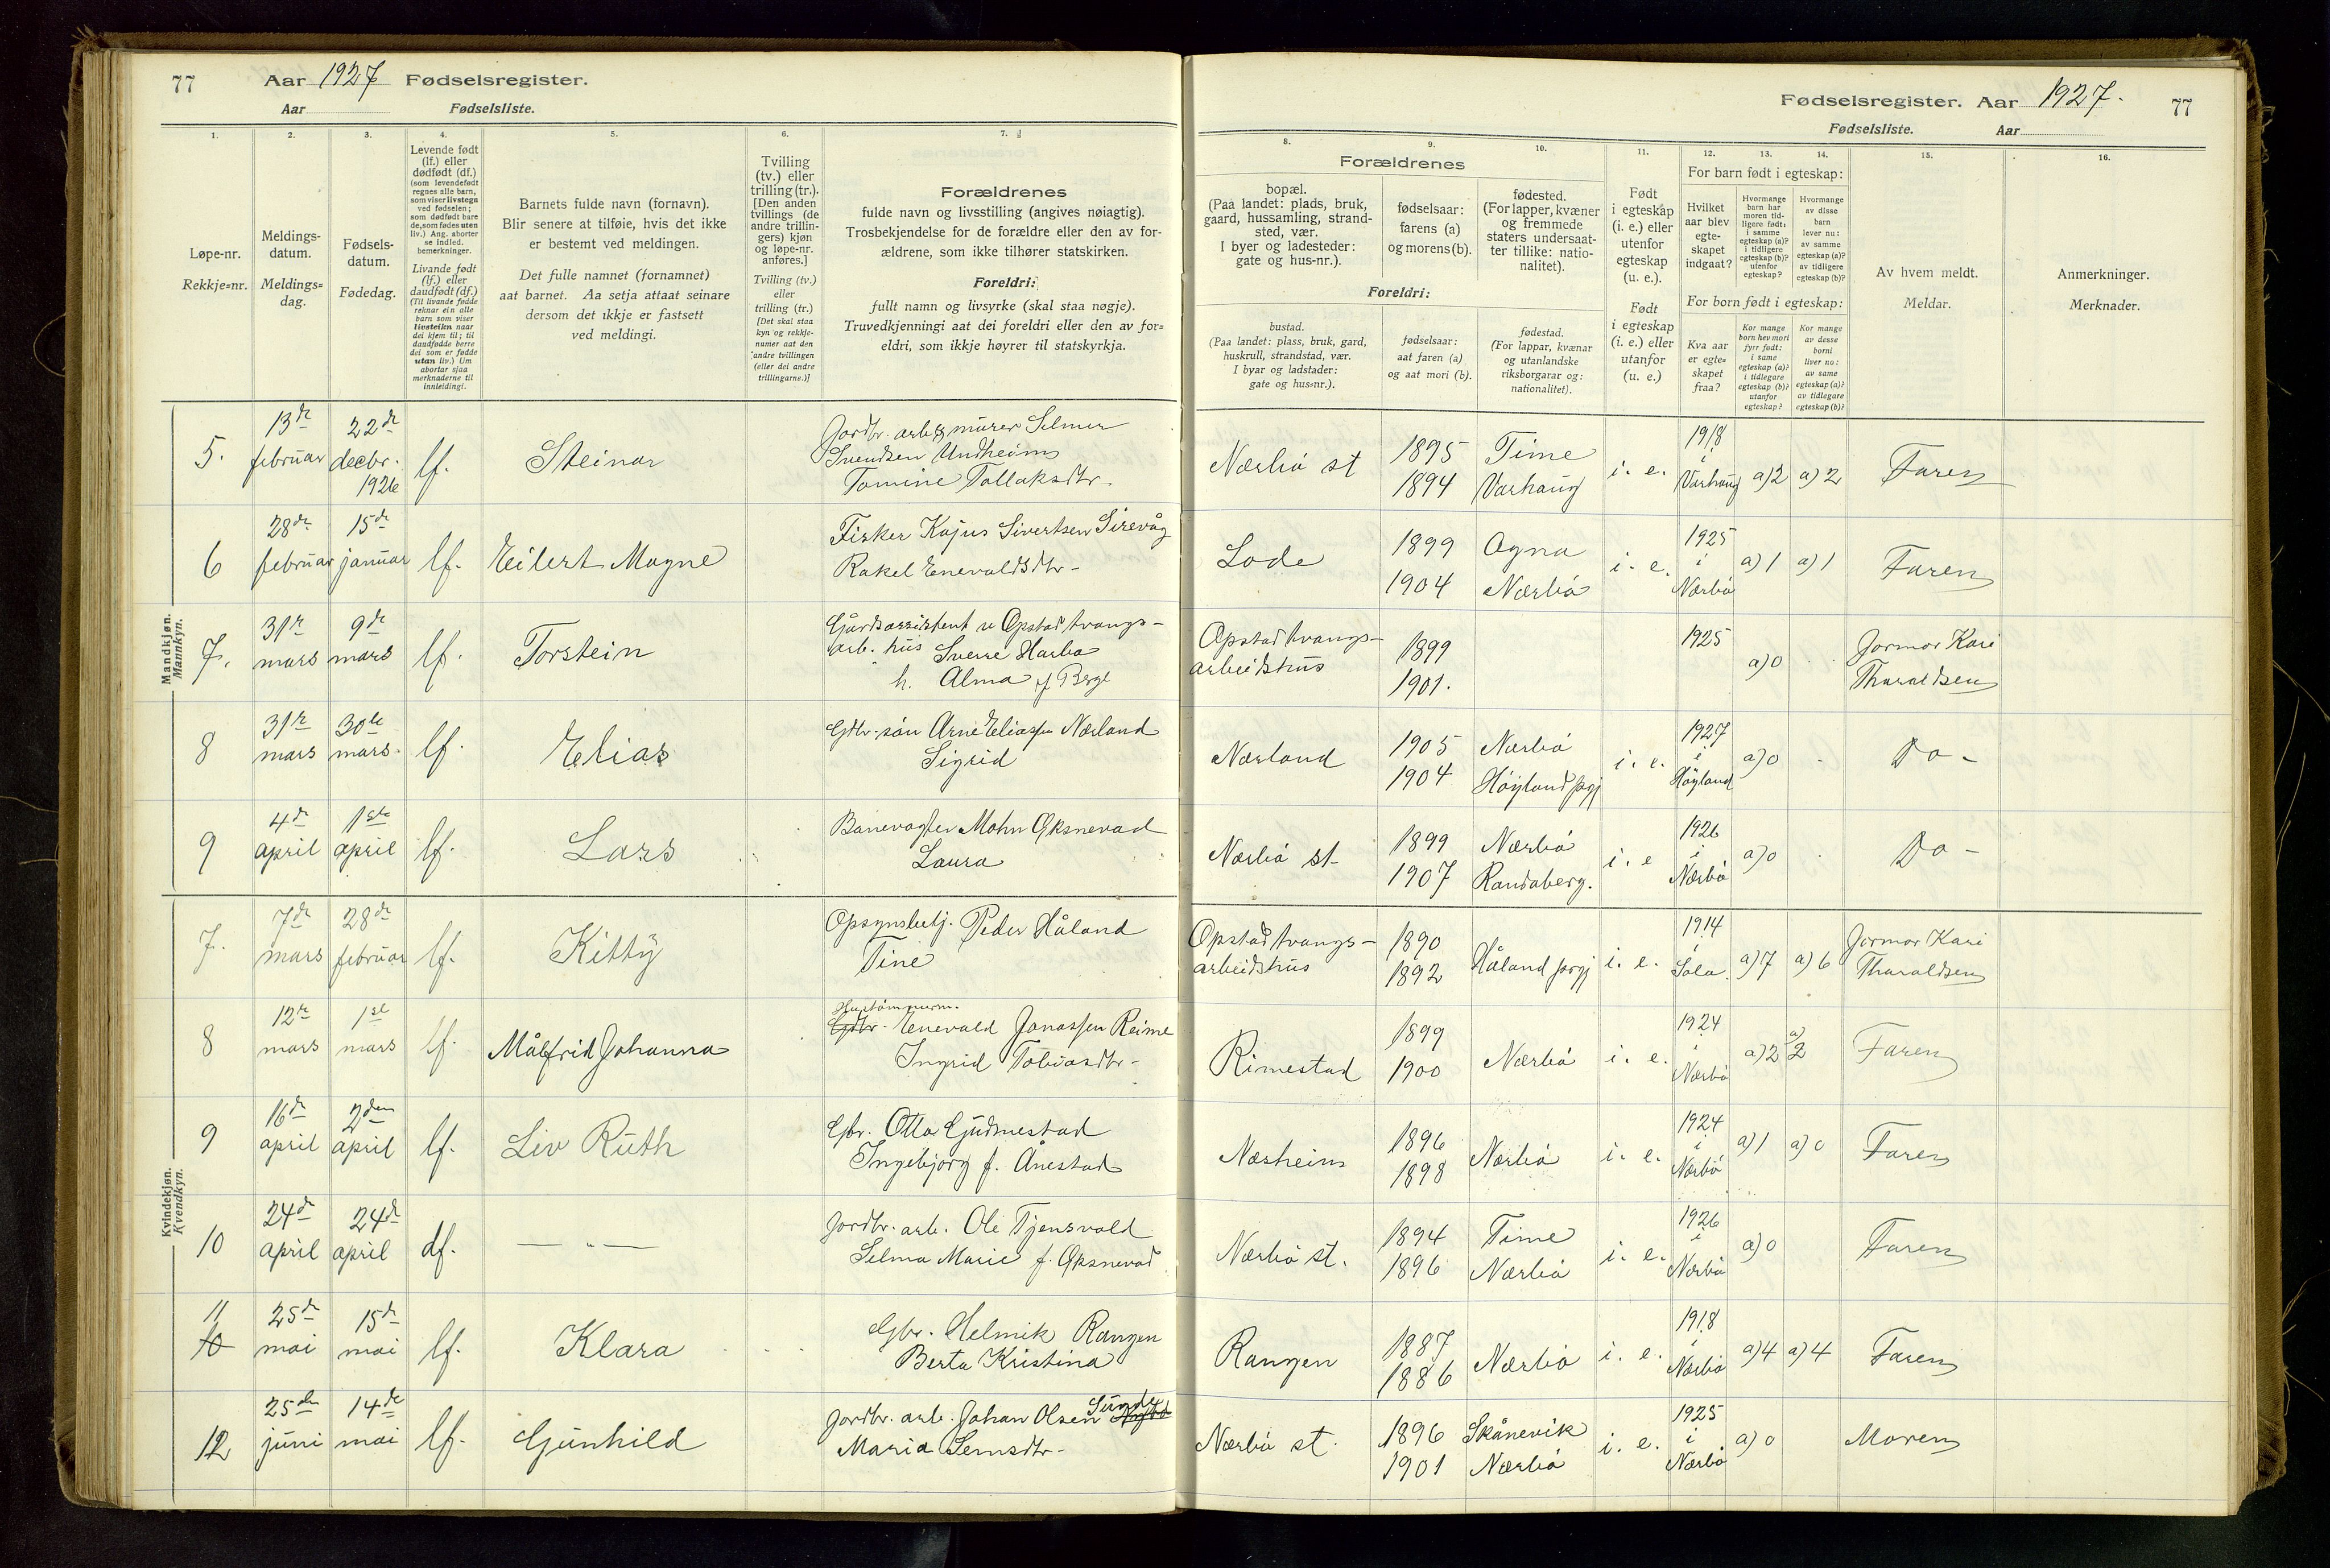 77 Aar 1927 Fødselsregister.
Aar Fødselsliste.
1. 2. 3. 4. 5. 6. 7.
Løpe-nr.
Rekkje=nr.
Meldings-
datum.
Meldings=
dag.
Fødsels-
datum.
Fødedag.
Levende født
(lf.) eller
dødfødt (df.)
(som levendefødt
regnes alle barn,
som viser livstegn
ved fødselen;
som dødfødt bare
de, som fødes uten
liv.) Ang. aborter
se indled.
bemerkninger.
Livande født
(lf.) eller
daudfødt (df.)
(Til livande fødde
reknar ein alle
barn som viser
livsteikn naar
dei kjem til; til
daudfødde berre
dei som er fødde
utan liv.) Um
abortar sjaa
merknaderne til
innleidingi.
Barnets fulde navn (fornavn).
Blir senere at tilføie, hvis det ikke
er bestemt ved meldingen.
Det fulle namnet (fornamnet)
aat barnet. Aa setja attaat seinare
dersom det ikkje er fastsett
ved meldingi.
Tvilling
(tv.) eller
trilling (tr.).
[Den anden
tvillings (de
andre trillin-
gers) kjøn
og løpe-nr.
anføres.]
Tvilling (tv.)
eller
trilling (tr.)
[Det skal staa
kyn og rekkje-
numer aat den
andre tvillingen
(eller dei andre
trillingarne.)]
Forældrenes
fulde navn og livsstilling (angives nøiagtig).
Trosbekjendelse for de forældre eller den av for-
ældrene, som ikke tilhører statskirken.
Foreldri:
fullt namn og livsyrke (skal staa nøgje).
Truvedkjenningi aat dei foreldri eller den av for=
eldri, som ikkje høyrer til statskyrkja.
Fødselsregister. Aar 1927. 77
Fødselsliste. Aar
8. 9. 10. 11. 12. 13. 14. 15. 16.
Forældrenes
bopæl.
(Paa landet: plads, bruk,
gaard, hussamling, strand-
sted, vær.
I byer og ladesteder:
gate og hus-nr.).
fødselsaar:
farens (a)
og morens (b).
fødested.
(For lapper, kvæner
og fremmede
staters undersaat-
ter tillike: natio-
nalitet).
Foreldri:
bustad.
(Paa landet: plass, bruk, gard,
huskrull, strandstad, vær.
I byar og ladstader:
gate og hus=nr.).
fødselsaar:
aat faren (a)
og aat mori (b).
fødestad.
(For lappar, kvænar
og utanlandske
riksborgarar og:
nationalitet).
Født
i egteskap
(i. e.) eller
utenfor
egteskap
(u. e.).
Født
i egteskap
(i. e.) eller
utanfor
(u. e.)
For barn født i egteskap:
Hvilket
aar blev
egte-
skapet
indgaat?
Hvormange
barn har
moren tid-
ligere født:
i samme
egteskap (a)?
i tidligere
egteskap (b)?
utenfor
egteskap?
Hvormange
av disse
barn
lever nu:
av samme
egteskap (a)?
av tidligere
egteskap (b)?
For born født i egteskap:
Kva aar
er egte=
skapet
fraa?
Kor mange
born hev mori
fyrr født:
i same
egteskap (a)?
i tidlegare
egteskap (b)?
utanfor
egteskap?
Kor mange
av desse
borni
liver no:
av same
egteskap (a)?
av tidlegare
egteskap (b)?
Av hvem meldt.
Meldar.
Anmerkninger.
Merknader.
Mandkjøn.
Mannkyn.
5. 13de februar 22de decbr. 1926 lf. Steinar Jordbr. arb. & murer Selmer
Svendsen Undheim
Tomine Tollaksdtr.
Nærbö st 1895 1894 Time Varhaug i. e. 1918 i Varhaug a) 2 a) 2 Faren
6 28de februar 15de januar lf. Eilert Magne Fisker Kajus Sivertsen Sirevåg
Rakel Enevaldsdtr.
Lode 1899 1904 Ogna Nærbö i. e. 1925 i Nærbö a) 1 a) 1 Faren
7. 31te mars 9de mars lf. Torstein Gårdsassistent v Opstad tvangs-
arb. hus Sverre Harbo
h. Alma f Berge
Opstad tvangs-
arbeidshus 1899 1901. 1925 a) 0 Jormor Kari
Tharaldsen
8 31te mars 30te mars. lf. Elias Gdbr. sön Arne Eliassen Nærland
Sigrid
Nærland 1905 1904 Nærbö Höyland prgj i. e. 1927 i Höyland a) 0 Do -
9 4de april 1ste april lf. Lars Banevogter Mohn Oksnevad
Laura
Nærbö st 1899 1907 Nærbö Randaberg. i. e 1926 i Nærbö a) 0 Do -
Kvindekjøn.
Kvendkyn.
7. 7de mars 28de februar lf. Kitty Opsynsbetj. Peder Håland
Tine
Opstad tvangs-
arbeidshus 1890 1892 Håland prgj i. e. 1914 i Sola. a) 7 a) 6 Jormor Kari
Tharaldsen
8 12te mars 1ste mars lf. Målfrid Johanna Hustömmerm.
Gdbr. Enevald Jonassen Reime
Ingrid Tobiasdtr.
Rimestad 1899 1900 Nærbö i. e. 1924 i Nærbö a) 2 a) 2 Faren
9 16de april 2den april lf. Liv Ruth Gbr. Otto Gudmestad
Ingebjörg f. Ånestad
Næsheim 1896 1898 Nærbö i. e. 1924 i Nærbö a) 1 a) 0 Faren
10 24de april 24de april df. — " — Jordbr. arb. Ole Tjensvold
Selma Marie f. Oksnevad
Nærbö st. 1894 1896 Time Nærbö i. e. 1926 i Nærbö a) 0 Faren
11 10 25de mai 15de mai lf. Klara Gbr. Helmik Rangen
Berta Kristina
Rangen 1887 1886 Nærbö i. e. 1918 i Nærbö a) 4 a) 4 Faren
12 25de juni 14de mai lf. Gunhild Jordbr. arb. Johan Olsen Sunde
Maria Semsdtr.
Nærbö st. 1896 1901 Skånevik Nærbö i. e. 1925 i Nærbö a) 0 Moren